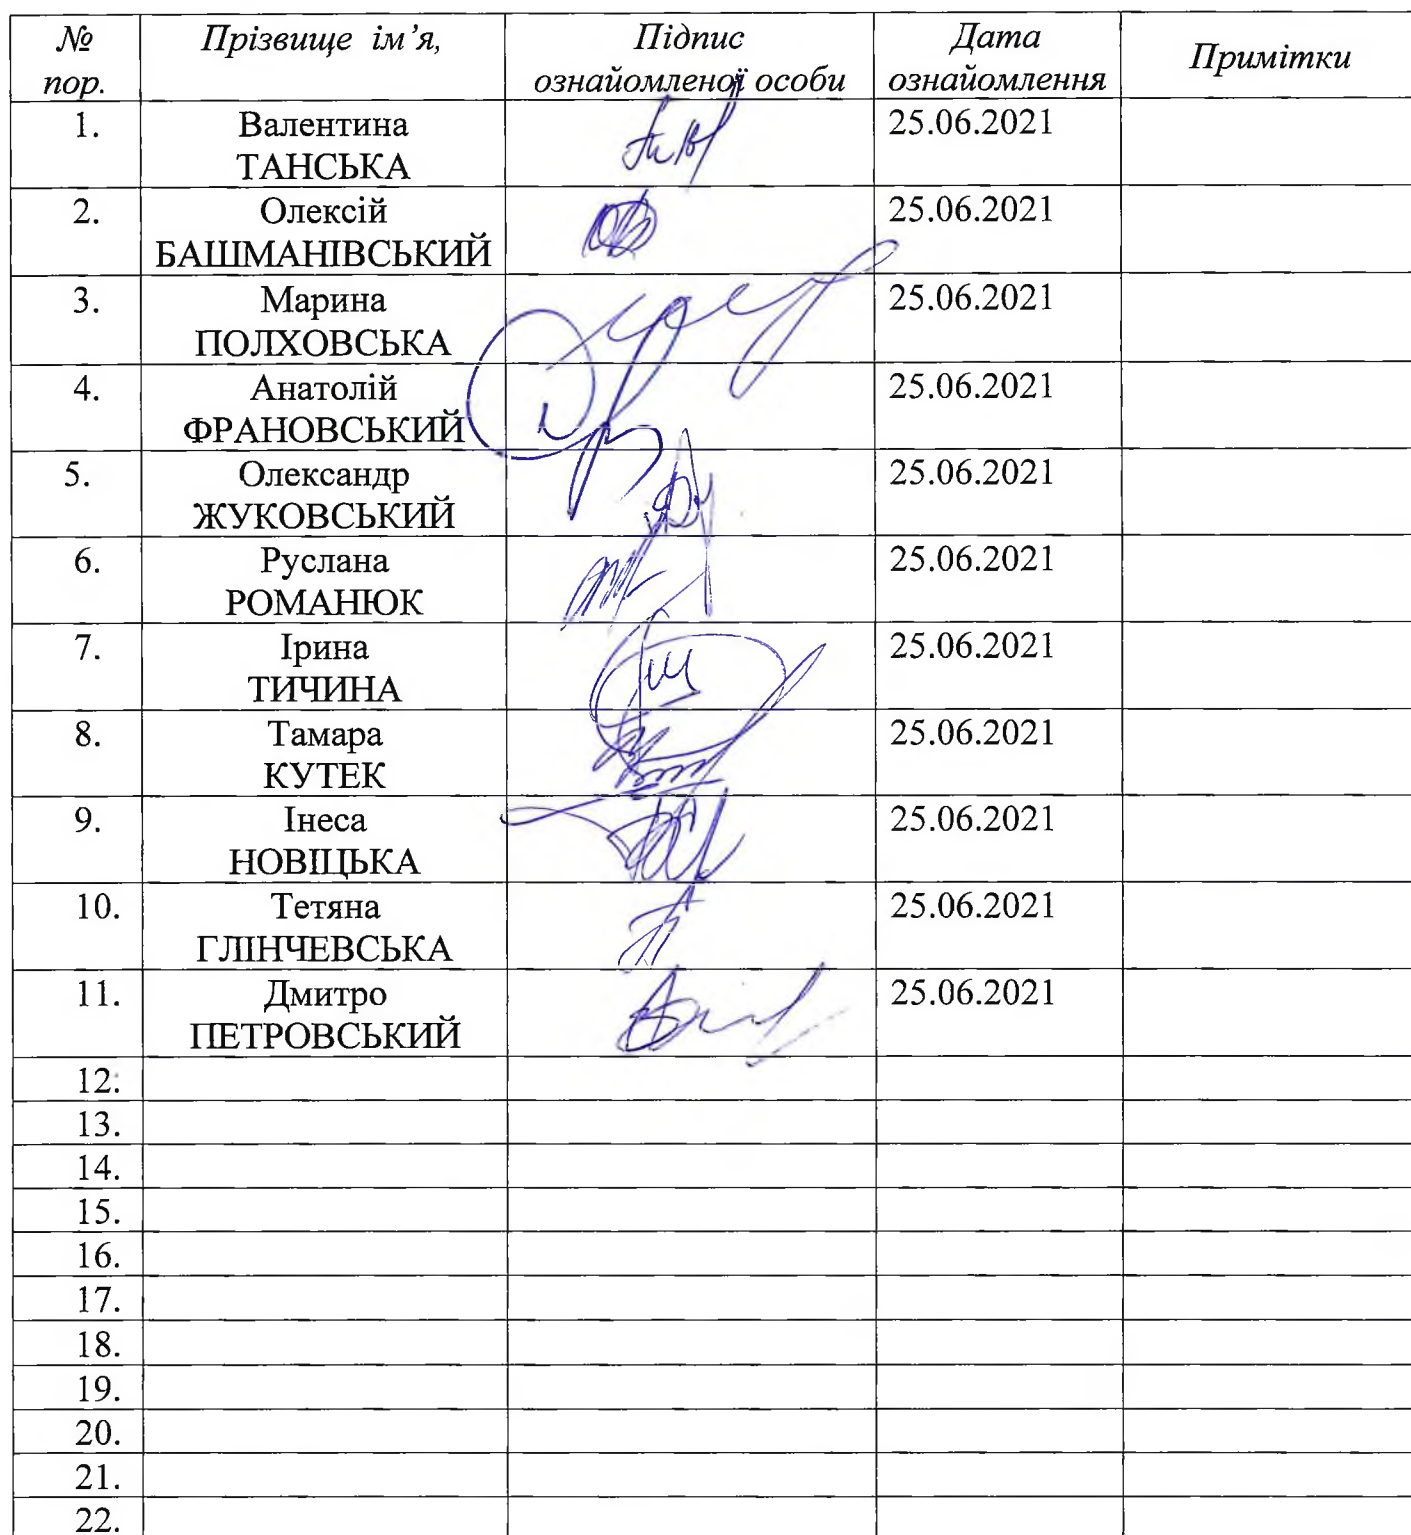 № пор. Прізвище ім’я, Підпис ознайомленої особи Дата ознайомлення Примітки
1. Валентина ТАНСЬКА 25.06.2021
2. Олексій БАШМАНІВСЬКИЙ 25.06.2021
3. Марина ПОЛХОВСЬКА 25.06.2021
4. Анатолій ФРАНОВСЬКИЙ 25.06.2021
5. Олександр ЖУКОВСЬКИЙ 25.06.2021
6. Руслана РОМАНЮК 25.06.2021
7. Ірина ТИЧИНА 25.06.2021
8. Тамара КУТЕК 25.06.2021
9. Інеса НОВІЦЬКА 25.06.2021
10. Тетяна ГЛІНЧЕВСЬКА 25.06.2021
11. Дмитро ПЕТРОВСЬКИЙ 25.06.2021
12.
13.
14.
15.
16.
17.
18.
19.
20.
21.
22.